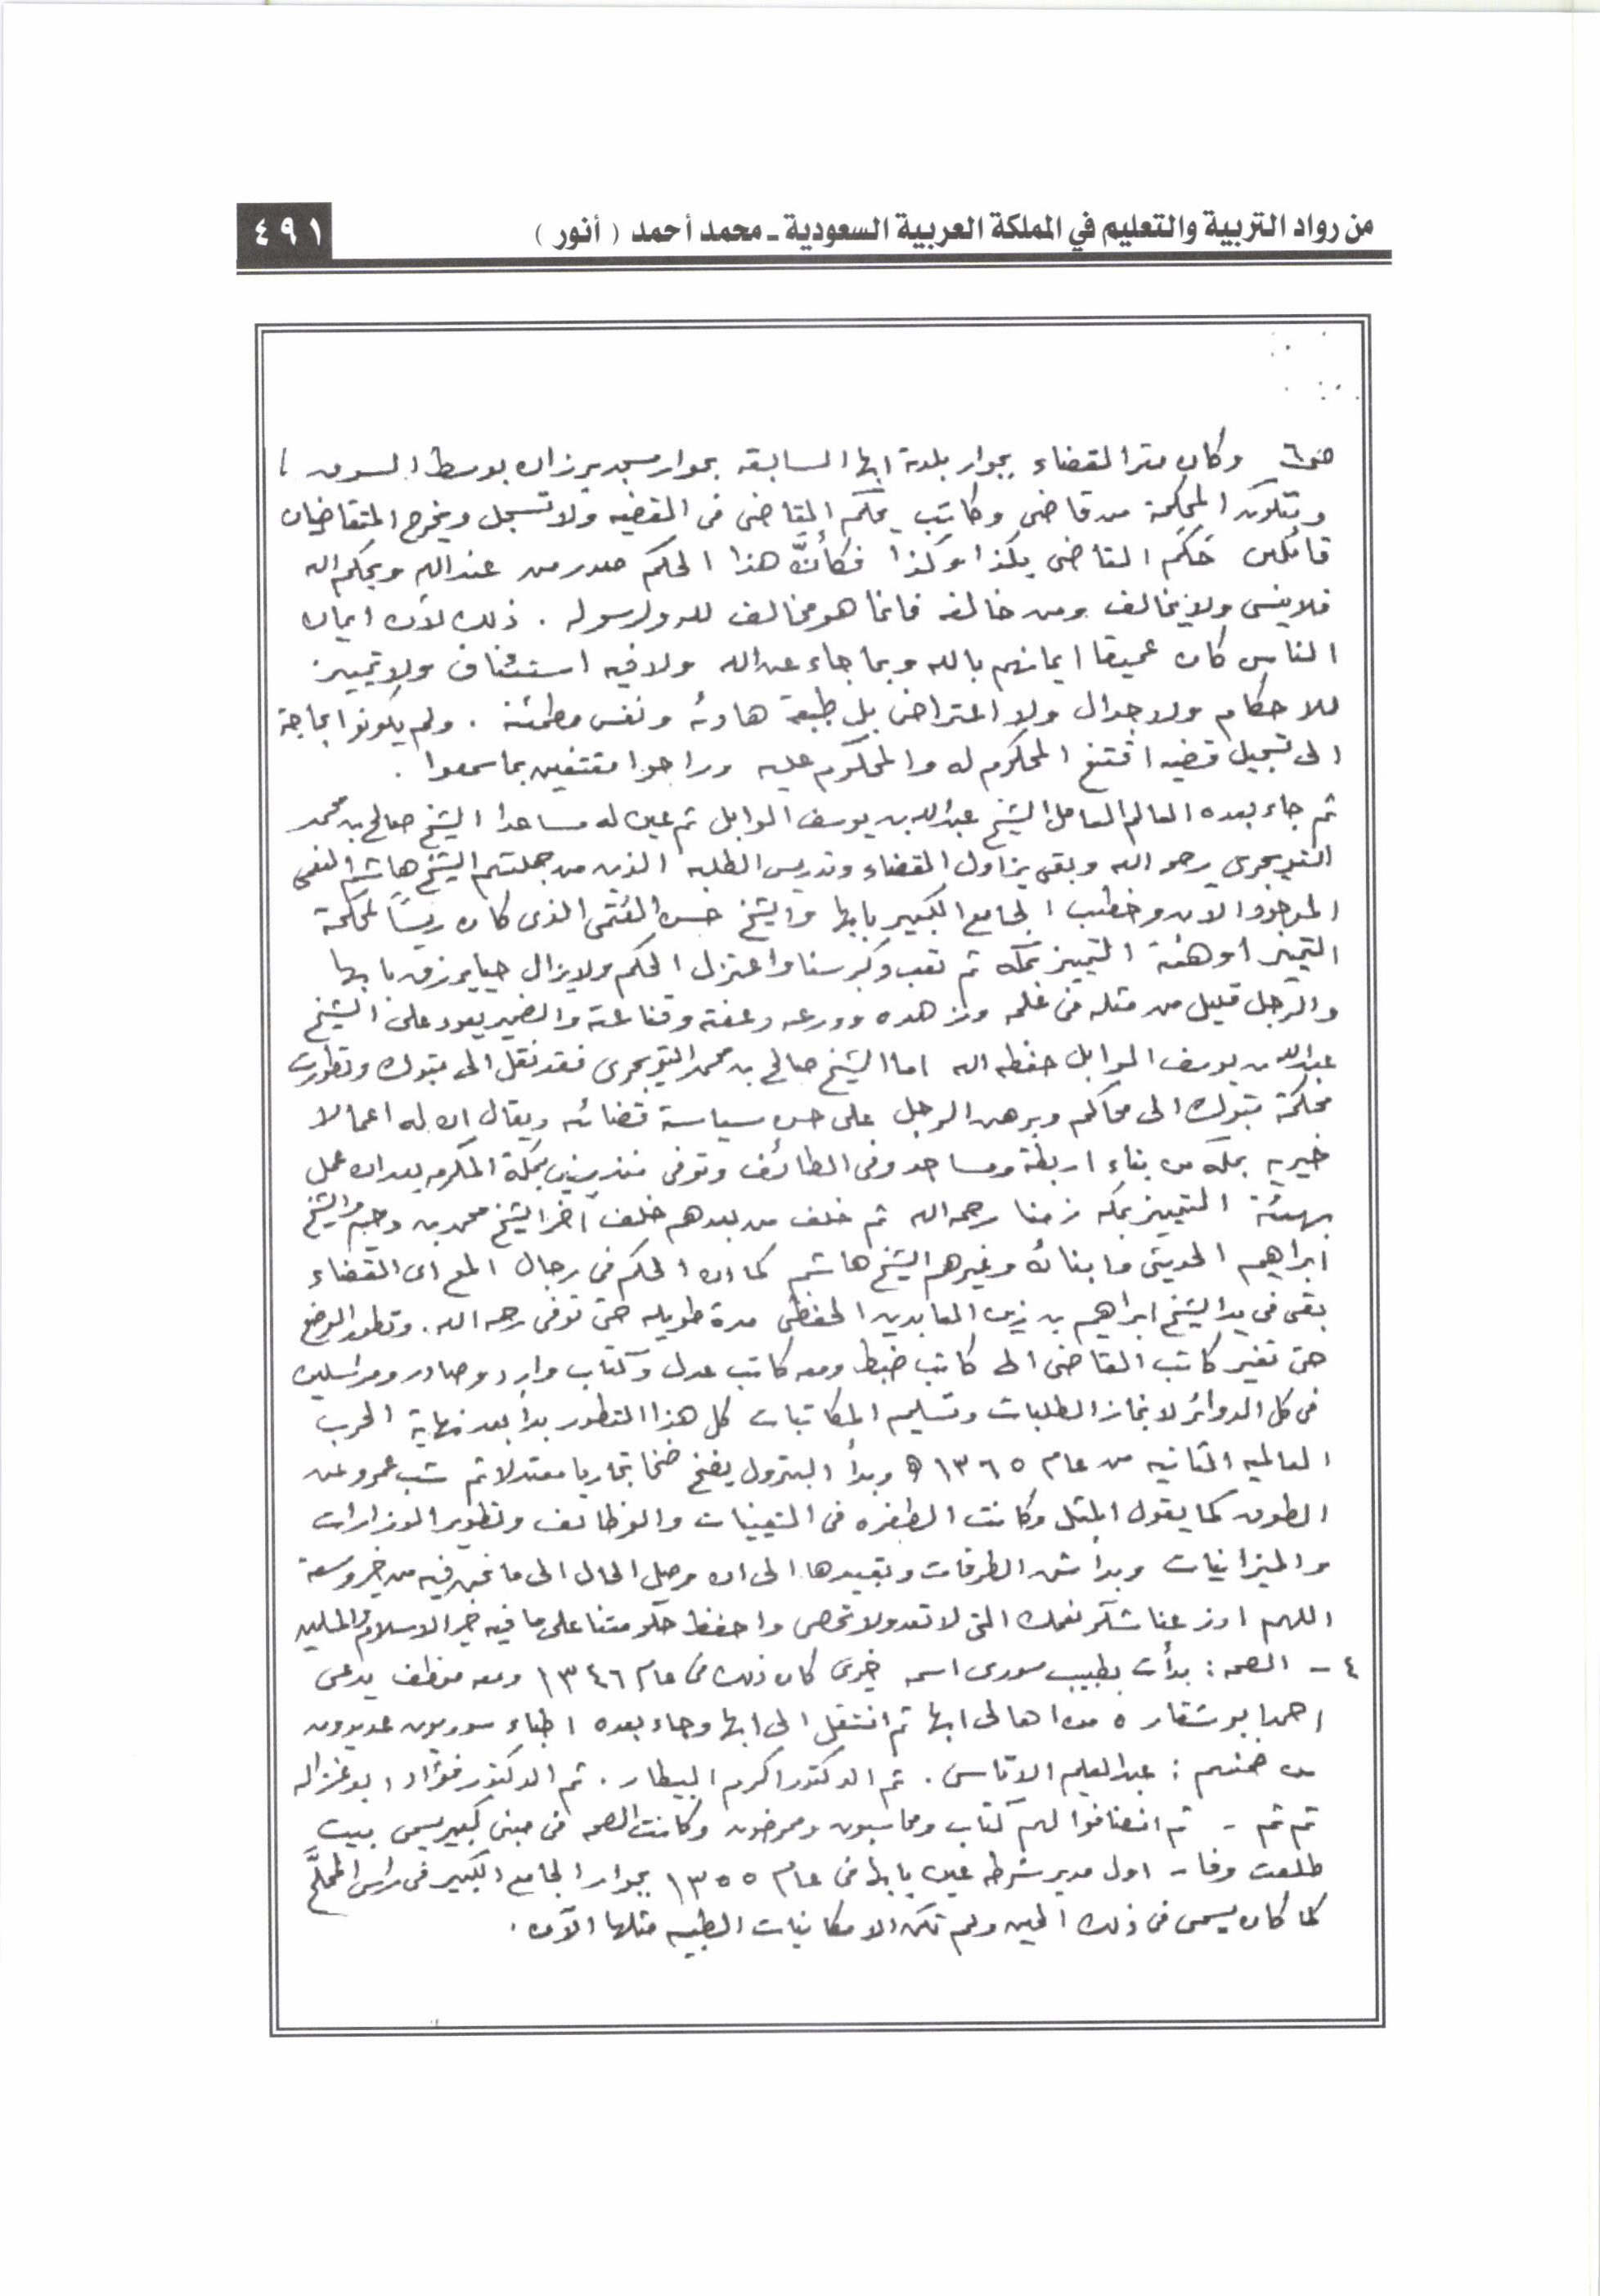 من رواد التربية والتعليم في المملكة العربية السعودية ـ محمد أحمد ( أنور )
٤٩١
ص٦ وكان مقر القضاء بجوار بلدية ابها السابقه بجوار مسجد برزان بوسط السوق ،
وتتكون المحكمة من قاضي وكاتب يحكم القاضي في القضيه ولا تسجل ويخرج المتقاضيان
قائلين حَكَم القاضي بكذا وكذا فكأنَّ هذا الحكم صدر من عند الله وبحكم الله
فلا ينسى ولا يخالف ومن خالفه فانما هو مخالف لله ولرسوله . ذلك لأن ايمان
الناس كان عميقا ايمانهم بالله وبما جاء عن الله ولا فيه استئناف ولا تمييز
للاحكام ولا جدال ولا اعتراض بل طبيعة هادئه ونفس مطمئنه . ولم يكونوا بحاجة
الى تسجيل قضيه اقتنع المحكوم له والمحكوم عليه وراحوا مقتنعين بما سمعوا .
ثم جاء بعده العالم العامل الشيخ عبدالله بن يوسف الوابل ثم عين له مساعدا الشيخ صالح بن محمد
التويجرى رحمه الله وبقى يزاول القضاء وتدريس الطلبه الذين من جملتهم الشيخ هاشم النعمى
الموجود الان وخطيب الجامع الكبير بابها والشيخ حسن العُتمى الذى كان رئيسًا لمحكمة
التمييز او هيئة التمييز بمكه ثم تعب وكبر سنا واعتزل الحكم ولا يزال حيا يرزق بابها
والرجل قليل من مثله في علمه وزهده وورعه وعفته وقناعته والضمير يعود على الشيخ
عبدالله بن يوسف الوابل حفظه الله اما الشيخ صالح بن محمد التويجرى فقد نقل الى تبوك وتطورت
محكمة تبوك الى محاكم وبرهن الرجل على حسن سياسة قضائه ويقال ان له اعمالا
خيريه بمكه من بناء اربطة ومساجد وفى الطائف وتوفى منذ سنين بمكة المكرمه بعد ان عمل
بهيئة التمييز بمكه زمنا رحمه الله ثم خلف من بعدهم خلف آخر الشيخ محمد بن والشيخ
ابراهيم الحديثى وابنائه وغيرهم الشيخ هاشم كما ان الحكم في رجال المع اى القضاء
بقى في يد الشيخ ابراهيم بن زين العابدين الحفظى مدة طويله حتى توفى رحمه الله . وتطور الوضع
حتى تغير كاتب القاضى الى كاتب ضبط ومعه كاتب عدل وكتاب وارد وصادر ومراسلين
فى كل الدوائر لانجاز الطلبات وتسليم المكاتبات كل هذا التطور بدأ بعد نهاية الحرب
العالميه الثانيه من عام ١٣٦٥ ه وبدأ البترول يضخ ضخا تجاريا معتدلا ثم شب عمرو عن
الطوق كما يقول المثل وكانت الطفره في التعيينات والوظائف وتطوير الوزارات
والميزانيات وبدأ شق الطرقات وتعبيدها الى ان وصل الحال الى ما نحن فيه من خير وسعة
اللهم اوزعنا شكر نعمك التى لا تعد ولا تحصى واحفظ حكومتنا على ما فيه خير الاسلام والمسلمين
٤ - الصحه : بدأت بطبيب سورى اسمه خيرى كان ذلك في عام ١٣٤٦ ومعه موظف يدعى
احمد ابو شقاره من اهالى ابها ثم انتقل الى ابها وجاء بعده اطباء سوريون عديدون
من ضمنهم : عبدالعليم الاتاسى . ثم الدكتور اكرم البيطار . ثم الدكتور فؤاد ابو غزاله
ثم ثم - ثم انضافوا لهم كتاب ومحاسبون وممرضون وكانت الصحه في مبنى كبير يسمى ببيت
طلعت وفا - اول مدير شرطه عين بابها في عام ١٣٥٥ بجوار الجامع الكبير في راس المملَّح
كما كان يسمى في ذلك الحين ولم تكن الامكانيات الطبيه مثلها الآن .